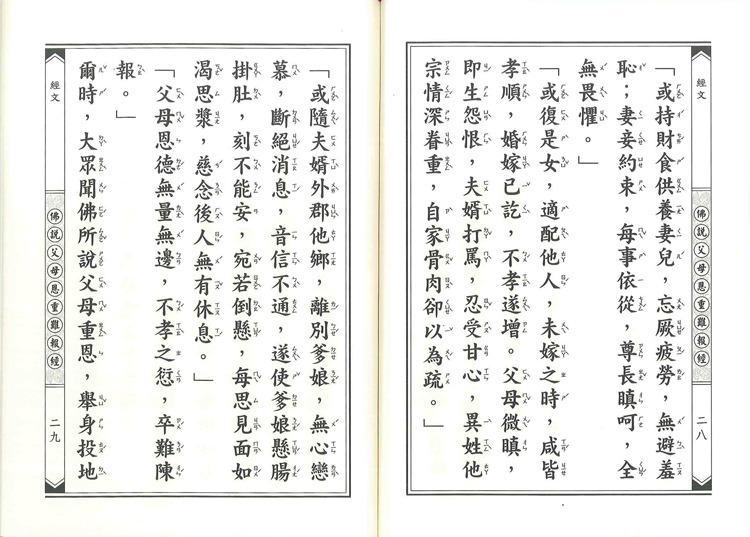 經文
佛說父母恩重難報經
二八
「或持財食供養妻兒，忘厥疲勞，無避羞
恥；妻妾約束，每事依從，尊長瞋呵，全
無畏懼。」
「或復是女，適配他人，未嫁之時，咸皆
孝順，婚嫁已訖，不孝遂增。父母微瞋，
即生怨恨，夫婿打罵，忍受甘心，異姓他
宗情深眷重，自家骨肉卻以為疏。」
「或隨夫婿外郡他鄉，離別爹娘，無心戀
慕，斷絕消息，音信不通，遂使爹娘懸腸
掛肚，刻不能安，宛若倒懸，每思見面如
渴思漿，慈念後人無有休息。」
「父母恩德無量無邊，不孝之愆，卒難陳
報。」
爾時，大眾聞佛所說父母重恩，舉身投地
經文
佛說父母恩重難報經
二九